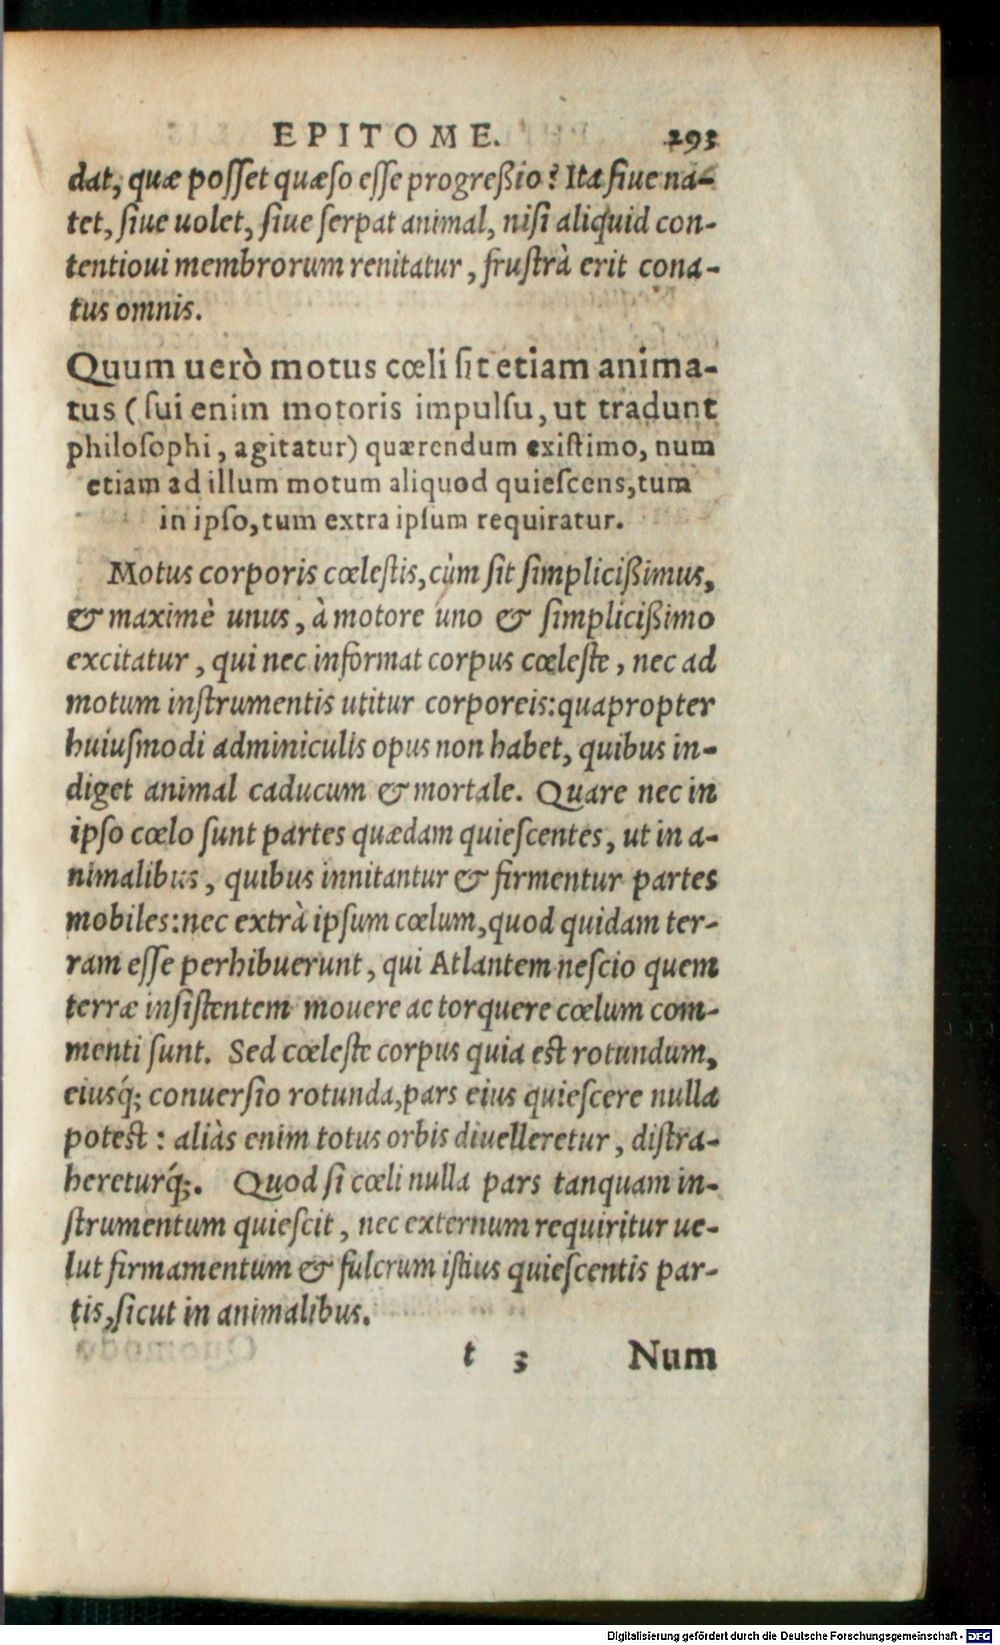 EPITOME. 293
dat, quæ posset quæso esse progreßio? Ita siue na-
tet, siue uolet, siue serpat animal, nisi aliquid con-
tentioui membrorum renitatur, frustrà erit cona-
tus omnis.
Quum uerò motus cœli sit etiam anima-
tus (sui enim motoris impulsu, ut tradunt
philosophi, agitatur) quærendum existimo, num
etiam ad illum motum aliquod quiescens, tum
in ipso, tum extra ipsum requiratur.
Motus corporis cœlestis, cùm sit simplicißimus,
& maximè unus, à motore uno & simplicißimo
excitatur, qui nec informat corpus cœleste, nec ad
motum instrumentis utitur corporeis: quapropter
huiusmodi adminiculis opus non habet, quibus in-
diget animal caducum & mortale. Quare nec in
ipso cœlo sunt partes quædam quiescentes, ut in a-
nimalibus, quibus innitantur & firmentur partes
mobiles: nec extrà ipsum cœlum, quod quidam ter-
ram esse perhibuerunt, qui Atlantem nescio quem
terræ insistentem mouere ac torquere cœlum com-
menti sunt. Sed cœleste corpus quia est rotundum,
eiusq́; conuersio rotunda, pars eius quiescere nulla
potest: aliàs enim totus orbis diuelleretur, distra-
hereturq́;. Quod si cœli nulla pars tanquam in-
strumentum quiescit, nec externum requiritur ue-
lut firmamentum & fulcrum istius quiescentis par-
tis, sicut in animalibus.
t 3 Num
Digitalisierung gefördert durch die Deutsche Forschungsgemeinschaft - DFG